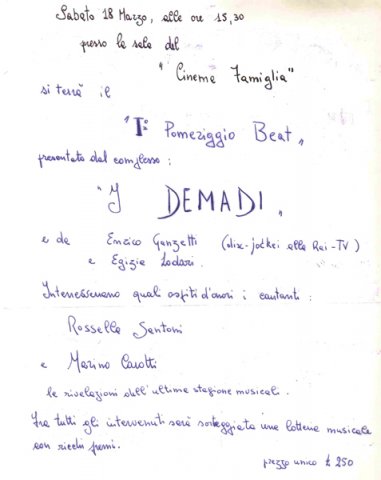 Sabato 18 Marzo, alle ore 15,30
presso la sala del
"Cinema Famiglia"
si terrà il
"I° Pomeriggio Beat"
presentato dal complesso:
"I DEMADI"
e da Enzico Ganzetti (disk-jockei alla Rai-TV)
e Egizia Lodari.
Interverranno quali ospiti d'onori i cantanti:
Rossella Santoni
e Marino Carotti
le rivelazioni dell'ultima stagione musicali.
Fra tutti gli intervenuti sarà sorteggiata una lotteria musicale
con ricchi premi.
prezzo unico £ 250